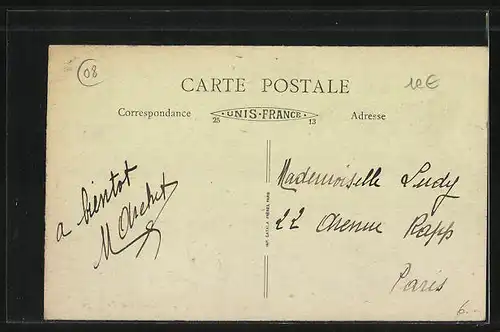 08
CARTE POSTALE
12€
Correspondance
· UNIS-FRANCE ·
25
13
Adresse
a bientot
Mademoiselle Ludy
22 Avenue Rapp
Paris
6.-